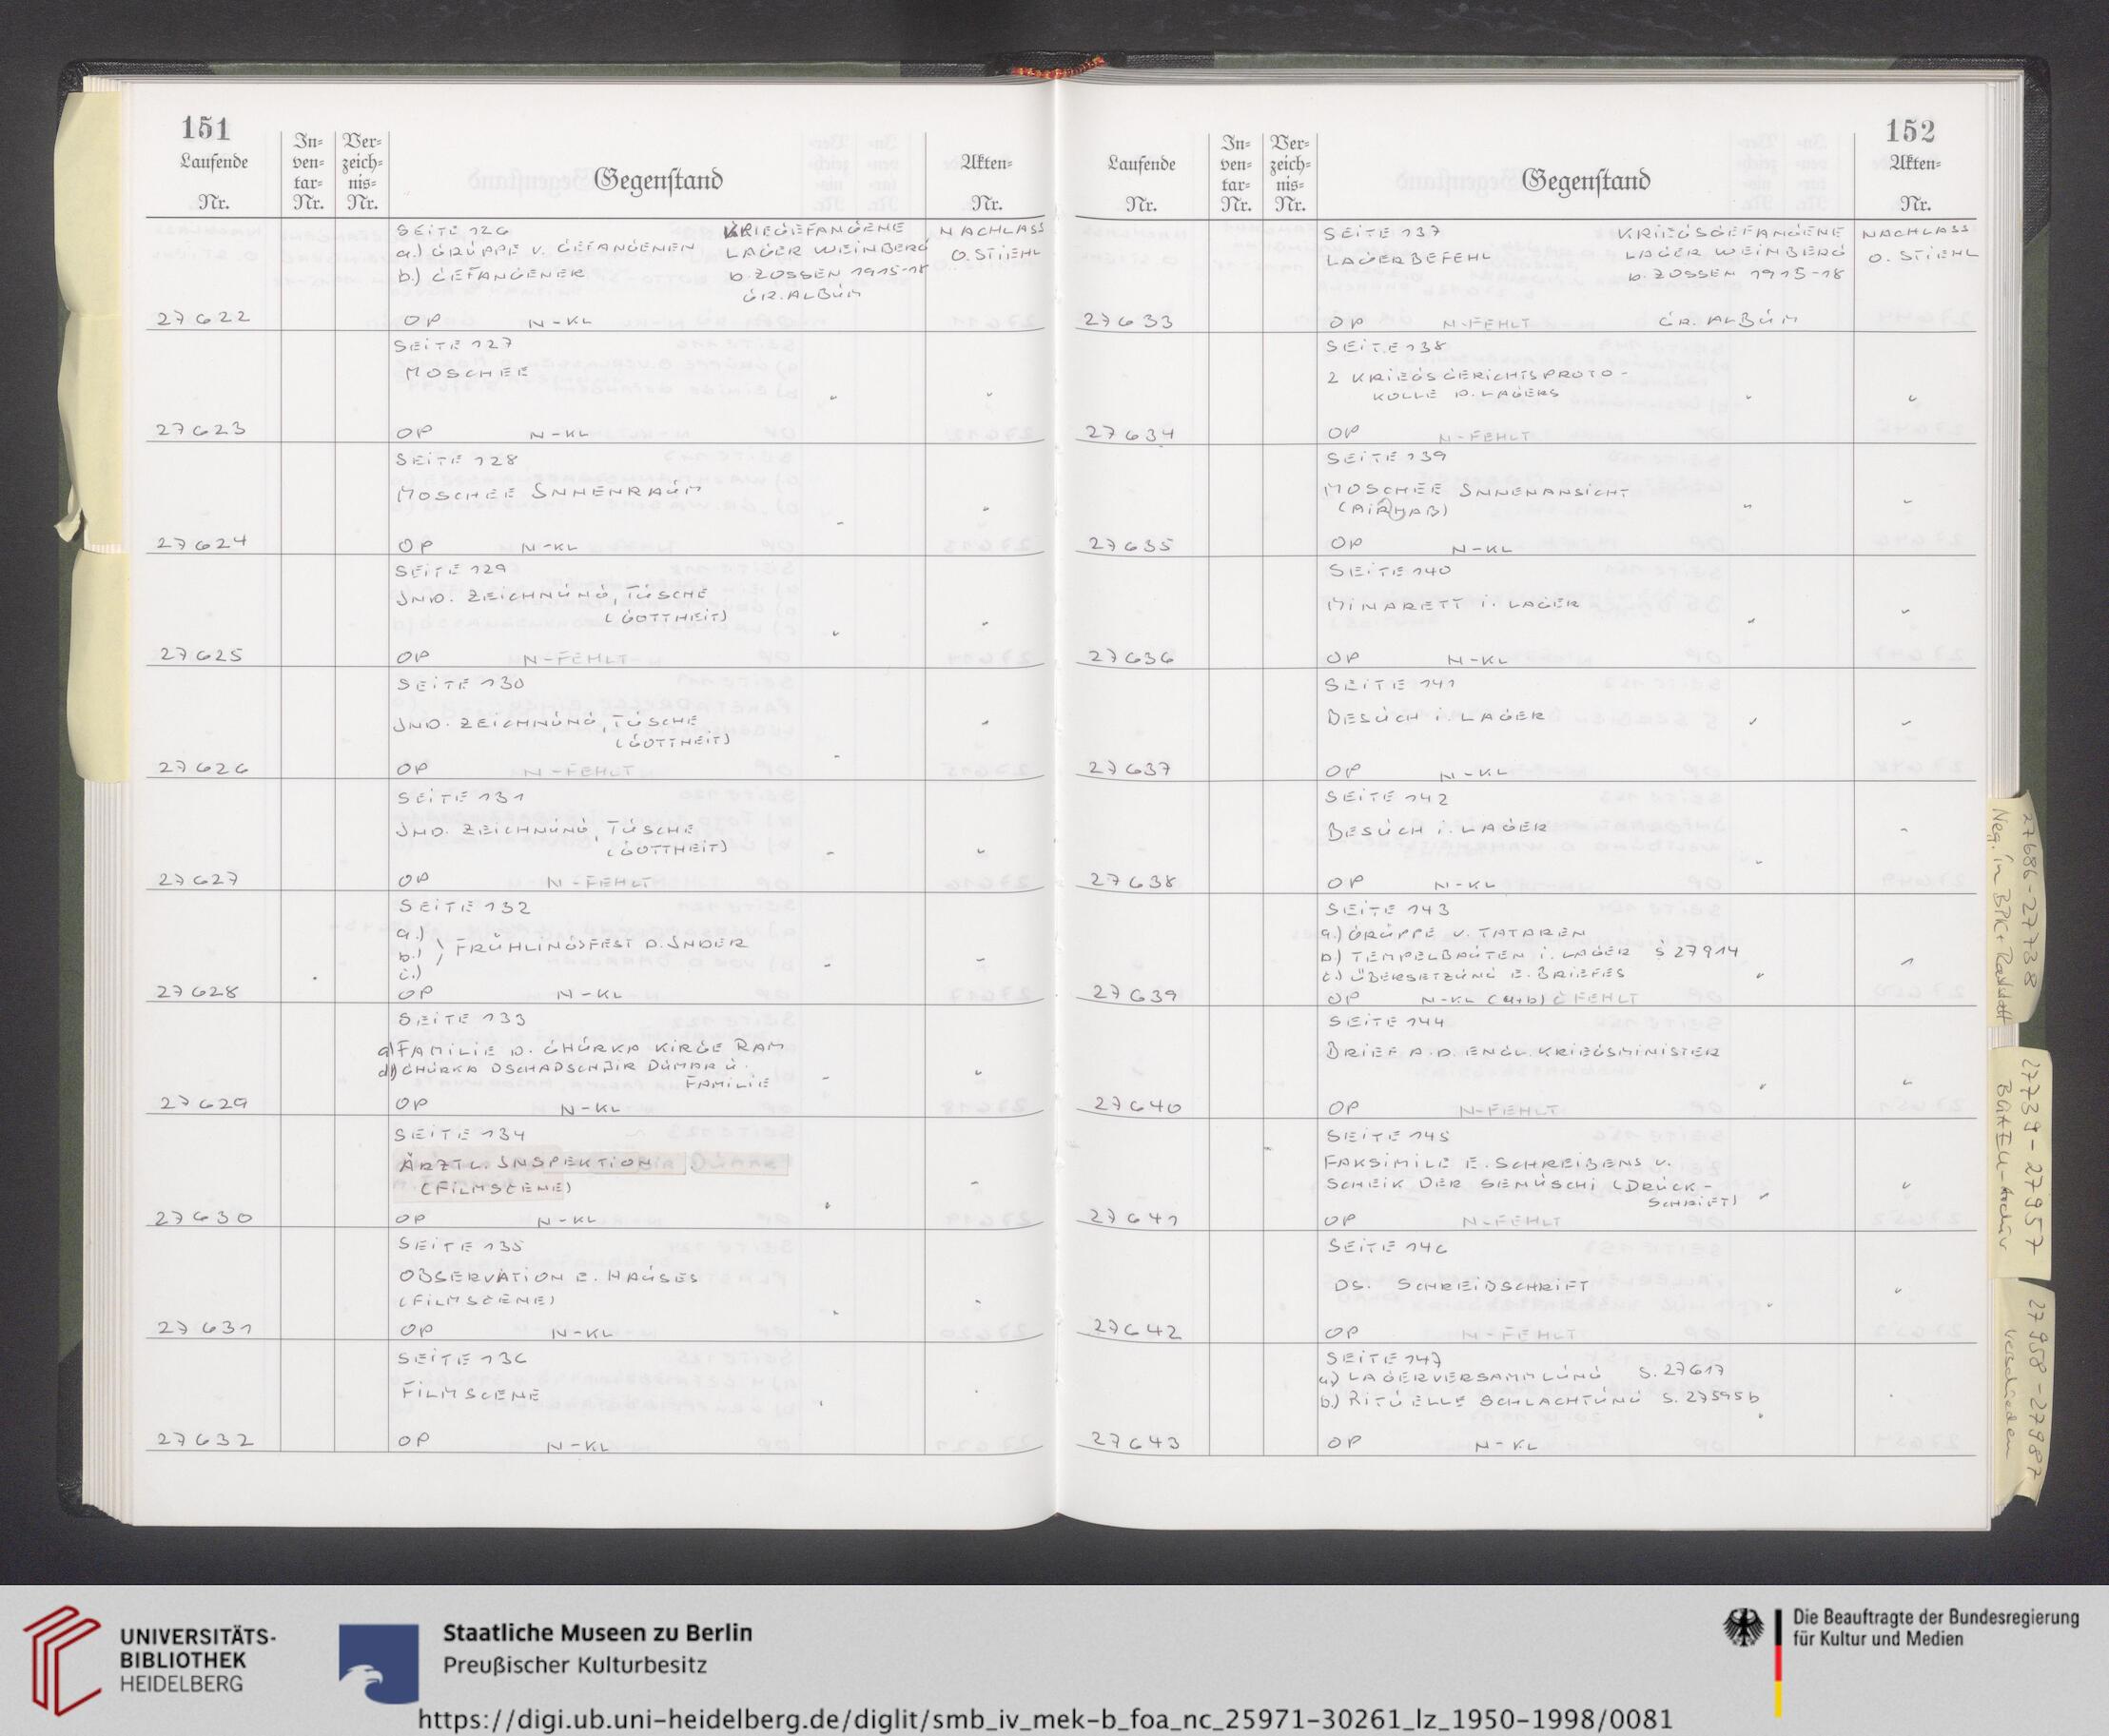 151
Laufende Nr.
In-ven-tar-Nr.
Ver-zeich-nis-Nr.
Gegenstand
Akten-Nr.
SEITE 126 KRIEGEFANGENE NACHLASS
a.) GRUPPE V. GEFANGENEN LAGER WEINBERG O. STIEHL
b.) GEFANGENER b. ZOSSEN 1915-18
GR. ALBUM
27622 OP N-KL
SEITE 127
MOSCHEE
27623 OP N-KL
SEITE 128
MOSCHEE INNENRAUM
27624 OP N-KL
SEITE 129
IND. ZEICHNUNG, TUSCHE
(GOTTHEIT)
27625 OP N-FEHLT
SEITE 130
IND. ZEICHNUNG, TUSCHE
(GOTTHEIT)
27626 OP N-FEHLT
SEITE 131
IND. ZEICHNUNG, TUSCHE
(GOTTHEIT)
27627 OP N-FEHLT
SEITE 132
a.)
b.) } FRÜHLINGSFEST D. INDER
c.)
27628 OP N-KL
SEITE 133
a) FAMILIE D. GHURKA KIRGE RAM
d) GHURKA DSCHADSCHBIR DUMAR U.
FAMILIE
27629 OP N-KL
SEITE 134
ÄRZTL. INSPEKTION
(FILMSCENE)
27630 OP N-KL
SEITE 135
OBSERVATION E. HAUSES
(FILMSCENE)
27631 OP N-KL
SEITE 136
FILMSCENE
27632 OP N-KL
152
Laufende Nr.
In-ven-tar-Nr.
Ver-zeich-nis-Nr.
Gegenstand
Akten-Nr.
SEITE 137 KRIEGSGEFANGENE NACHLASS
LAGERBEFEHL LAGER WEINBERG O. STIEHL
b. ZOSSEN 1915-18
27633 OP N-FEHLT GR. ALBUM
SEITE 138
2 KRIEGSGERICHTSPROTO-
KOLLE D. LAGERS
27634 OP N-FEHLT
SEITE 139
MOSCHEE INNENANSICHT
(MIRHAB)
27635 OP N-KL
SEITE 140
MINARETT i. LAGER
27636 OP N-KL
SEITE 141
BESUCH i. LAGER
27637 OP N-KL
SEITE 142
BESUCH i. LAGER
27638 OP N-KL
SEITE 143
a.) GRUPPE V. TATAREN
b) TEMPELBAUTEN i. LAGER S 27914
c.) ÜBERSETZUNG E. BRIEFES
27639 OP N-KL (a+b) C FEHLT
SEITE 144
BRIEF A.D. ENGL. KRIEGSMINISTER
27640 OP N-FEHLT
SEITE 145
FAKSIMILE E. SCHREIBENS V.
SCHEIK DER SENUSCHI (DRUCK-
SCHRIFT)
27641 OP N-FEHLT
SEITE 146
DS. SCHREIBSCHRIFT
27642 OP N-FEHLT
SEITE 147
a) LAGERVERSAMMLUNG S. 27617
b.) RITUELLE SCHLACHTUNG S. 27595b
27643 OP N-KL
27686-27738
Neg. in BPK + Rathstett
27739-27957
BGAEU-Archiv
27958-27987
verschieden
UNIVERSITÄTS-
BIBLIOTHEK
HEIDELBERG
Staatliche Museen zu Berlin
Preußischer Kulturbesitz
Die Beauftragte der Bundesregierung
für Kultur und Medien
https://digi.ub.uni-heidelberg.de/diglit/smb_iv_mek-b_foa_nc_25971-30261_lz_1950-1998/0081